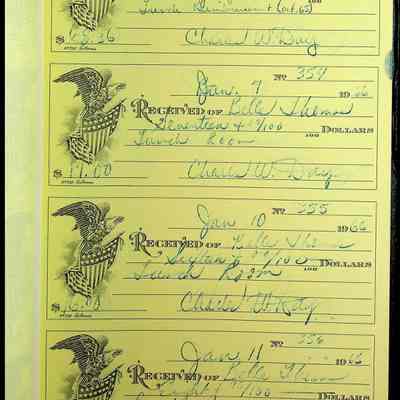 Lunch (Oct. 65)
100
$ 68.36
Charles W. Day
Jan. 7 No 354
1966
RECEIVED OF Belle Thomas
Seventeen & no/100
100 DOLLARS
Lunch Room
$ 17.00
Charles W. Day
Jan 10 No 355
1966
RECEIVED OF Belle
Sixteen & no/100
100 DOLLARS
Lunch Room
$ 16.00
Charles W. Day
Jan 11 No 356
1966
RECEIVED OF Belle
no/100
100 DOLLARS